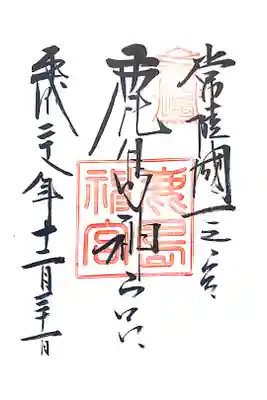 常陸國一之宮
鹿島神宮
平成二十八年十二月三十一日
鹿島神宮